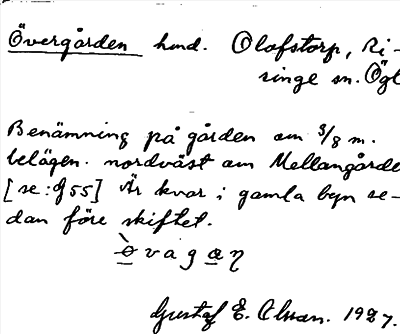 Övergården hmd. Olofstorp, Ri-
singe sn. Ögl
Benämning på gården om 3/8 m.
belägen nordväst om Mellangårde
[se: 55] Är kvar i gamla byn se-
dan före skiftet.
Gustaf E. Olsson. 1927.